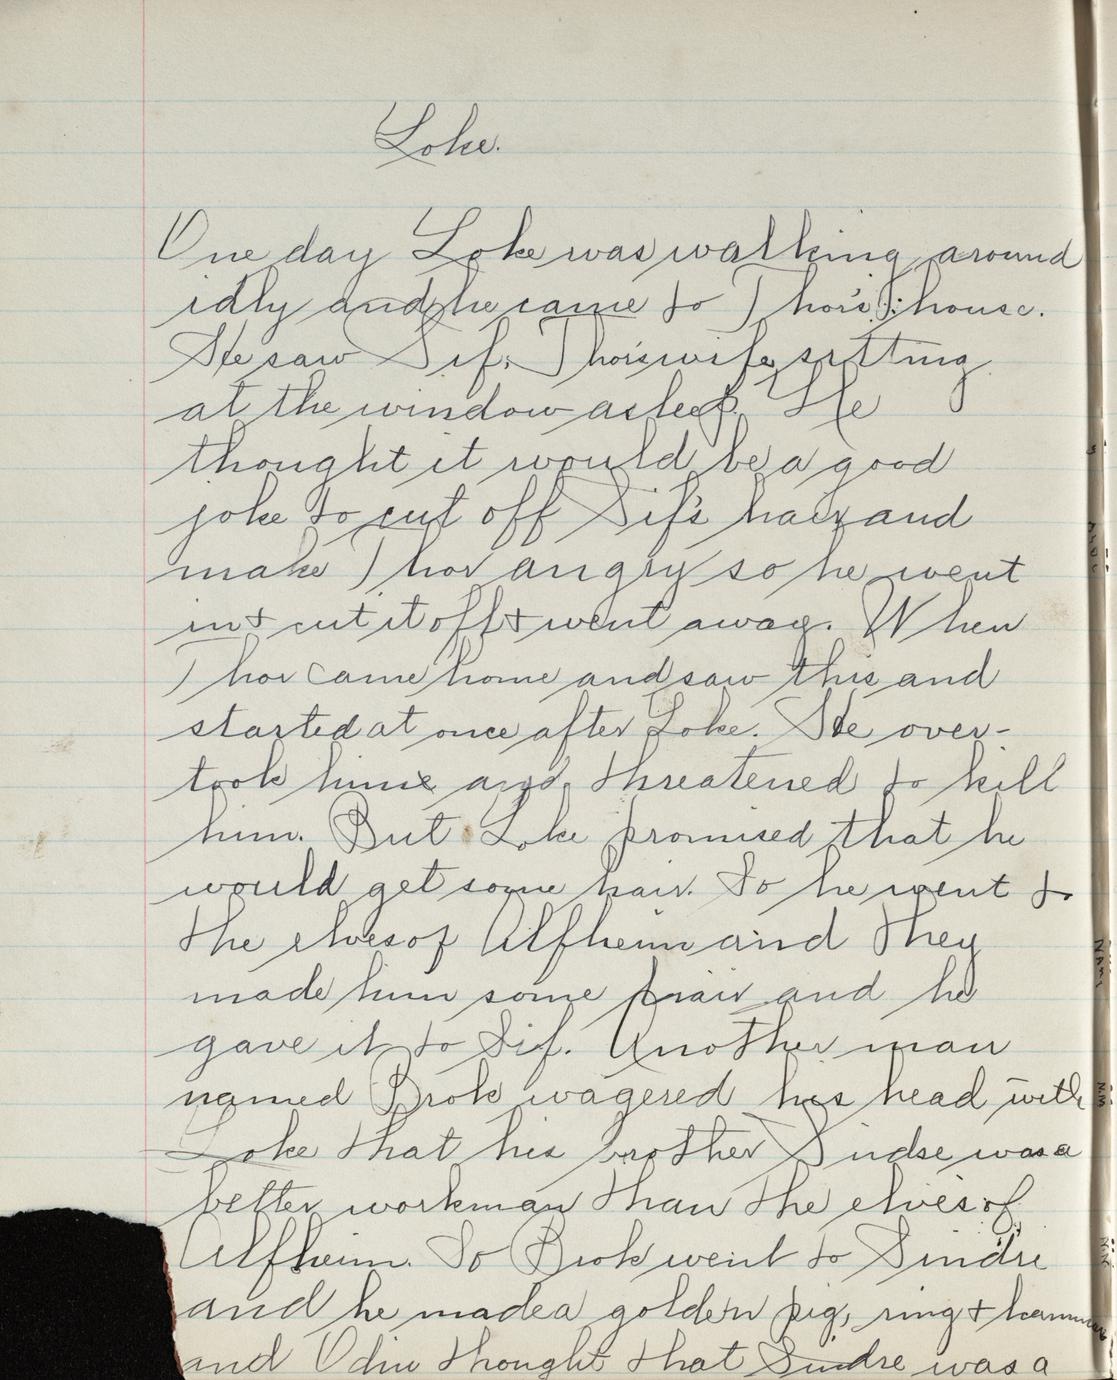 Loke.
One day Loke was walking around
idly and he came to Thor's house.
He saw Sif, Thor's wife, sitting
at the window asleep. He
thought it would be a good
joke to cut off Sif's hair and
make Thor angry so he went
in + cut it off + went away. When
Thor came home and saw this and
started at once after Loke. He over-
took him and threatened to kill
him. But Loke promised that he
would get some hair. So he went to
the elves of Alfheim and they
made him some hair and he
gave it to Sif. Another man
named Brok wagered his head with
Loke that his brother Sindre was a
better workman than the elves of
Alfheim. So Brok went to Sindre
and he made a golden pig, ring + hammer
and Odin thought that Sindre was a